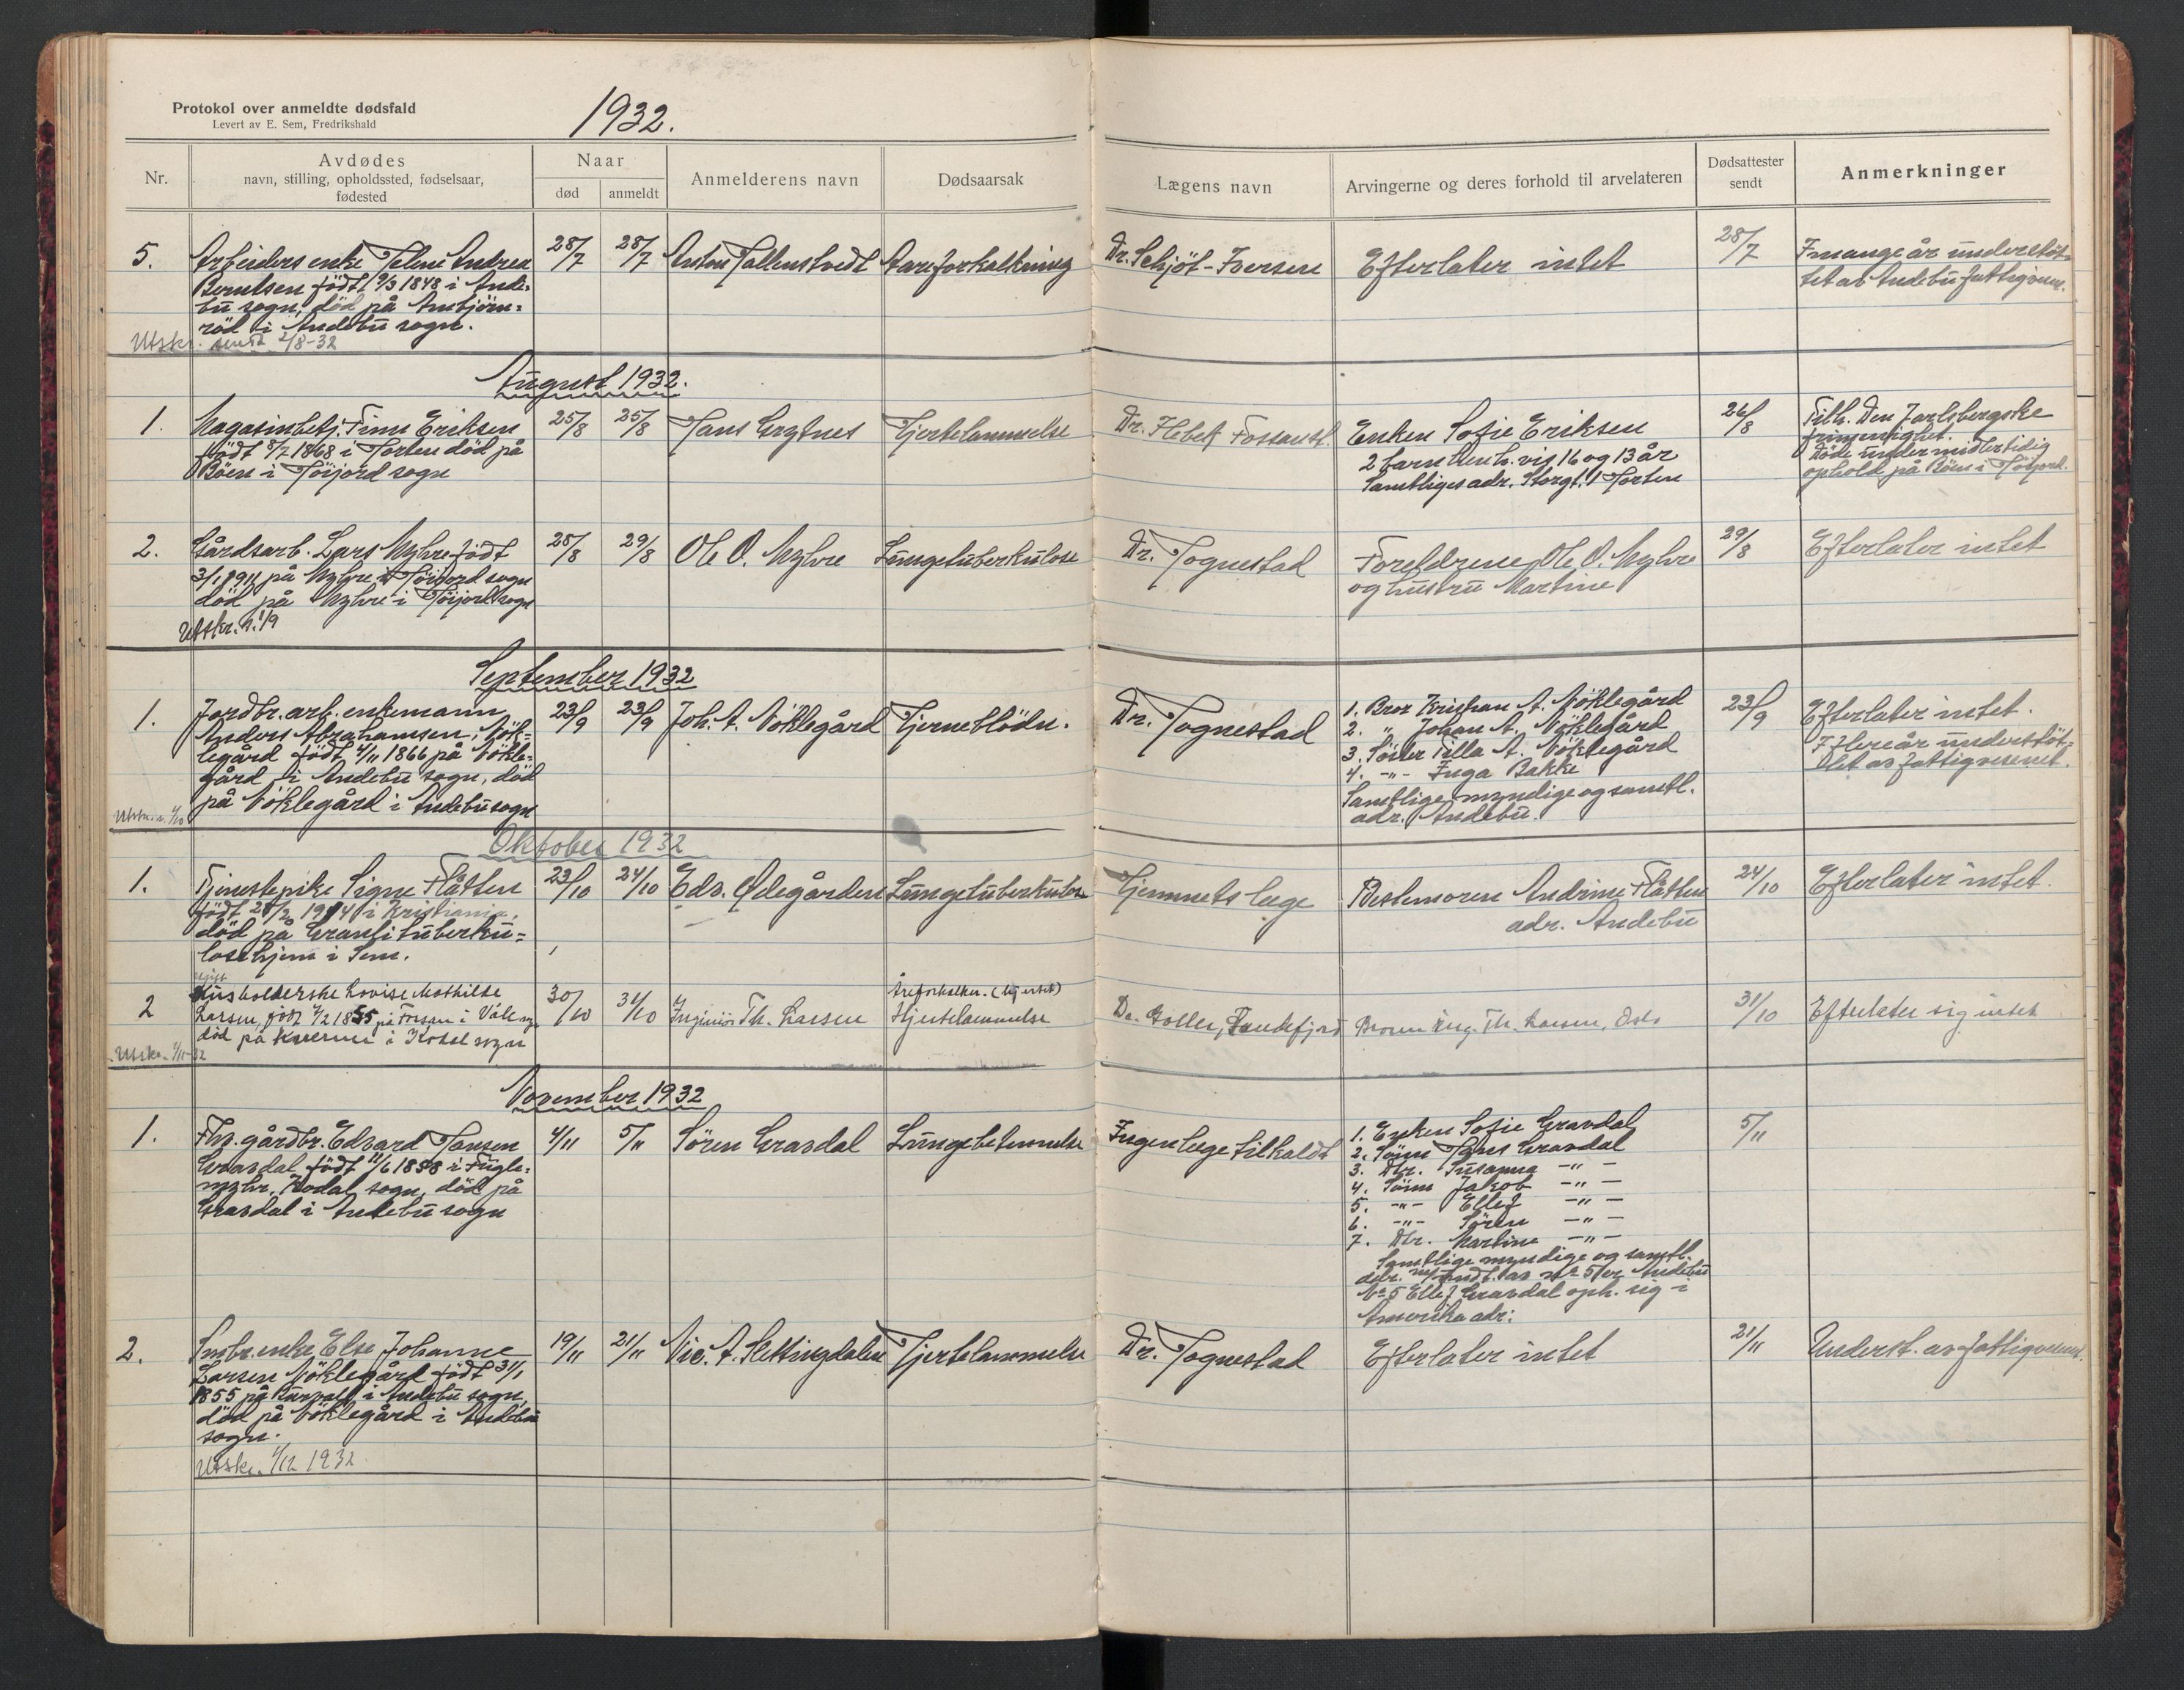 Protokol over anmeldte dødsfald
Levert av E. Sem, Fredrikshald
1932.
Nr.
Avdødes
navn, stilling, opholdssted, fødselsaar,
fødested
Naar
død
anmeldt
Anmelderens navn
Dødsaarsak
Lægens navn
Arvingerne og deres forhold til arvelateren
Dødsattester
sendt
Anmerkninger
5.
Arbeiders enke Telene Andrea
Berntsen født 9/3 1848 i Ande-
bu sogn, død på
i Andebu sogn.
Utskr. sendt 2/8-32
28/7
28/7
Anton Tallenstvedt
Aareforkalkning
Dr. Schjöt-Iversen
Efterlater intet
28/7
I mange år understøt-
tet av Andebu fattigvesen.
August 1932.
1.
Magasinbetj. Finn Eriksen
født 8/7 1868 i Horten død på
Böen i Höijord sogn
25/8
25/8
Hans Grytnes
Hjertelammelse
Dr. Fossaust.
Enken Sofie Eriksen
2 barn henh.vis 16 og 13 år
Samtliges adr. Storgt. 1 Horten
26/8
Tilh. Den Jarlsbergske
frimenighet.
Døde under midlertidig
ophold på Böen i Höijord.
2.
Gårdsarb. Lars Myhre født
3/1 1911 på Myhre i Höijord sogn
død på Myhre i Höijord sogn
Utskr. s. 1/9
28/8
29/8
Ole O. Myhre
Lungetuberkulose
Dr. Tognestad
Foreldrene Ole O. Myhre
og hustru Martine
29/8
Efterlater intet
September 1932
1.
Jordbr. arb. enkemann
Anders Abrahamsen, Nök-
legård født 4/11 1866 på Nökle-
gård i Andebu sogn, död
på Nöklegård i Andebu sogn
Utskr. s. 1/10
23/9
23/9
Joh. A. Nöklegård
Hjerneblödn.
Dr. Tognestad
1. Bror Kristian A. Nöklegård
2. " Johan A. Nöklegård
3. Söster Tilla A. Nöklegård
4. -"- Inga Bakke
Samtlige myndige og samtl.
adr. Andebu.
23/9
Efterlater intet.
I flere år understöt-
tet av fattigvesenet.
Oktober 1932
1.
Tjenestepike Signe Flåtten
født 28/2 1914 i Kristiania,
död på Granli tuberku-
losehjem i Sem.
23/10
24/10
Edv. Ødegården
Lungetuberkulose
Hjemmets lege
Bestemoren Andrine Flåtten
adr. Andebu
24/10
Efterlater intet.
2
ugift
Husholderske Lovise Mathilde
Larsen, født 4/2 1855 på Fossan i Våle sogn
död på i Kodal sogn
Utskr. 1/11-32
30/10
31/10
Ingeniör Th. Larsen
Åreforkalkn. (hjertet)
Hjertelammelse
Dr. Holler, Sandefjord
Broren Ing. Th. Larsen, Oslo
31/10
Efterlater sig intet
November 1932
1.
Fhv. gårdbr. Edvard Hansen
Gravdal født 11/6 1858 i Fugle-
myhr, Kodal sogn, död på
Gravdal i Andebu sogn
4/11
5/11
Sören Gravdal
Lungebetennelse
Ingen lege tilkaldt
1. Enken Sofie Gravdal
2. Sönn Hans Gravdal
3. Dtr. Susanna -"-
4. Sönn Jakob -"-
5. -"- Ellef -"-
6. -"- Sören -"-
7. Dtr. Martine -"-
Samtlige myndige og samtl.
adr. med undt. av nr 5 er Andebu
Nr 5 Ellef Gravdal oph. sig i
Amerika adr:
5/11
2.
Smbr. enke Else Johanne
Larsen Nöklegård født 31/1
1855 på i Andebu sogn,
död på Nöklegård i Andebu
sogn.
Utskr. 1/12 1932.
19/11
21/11
Nic. A. Slettingdalen
Hjertelammelse
Dr. Tognestad
Efterlater intet
21/11
Underst. av fattigvesenet.